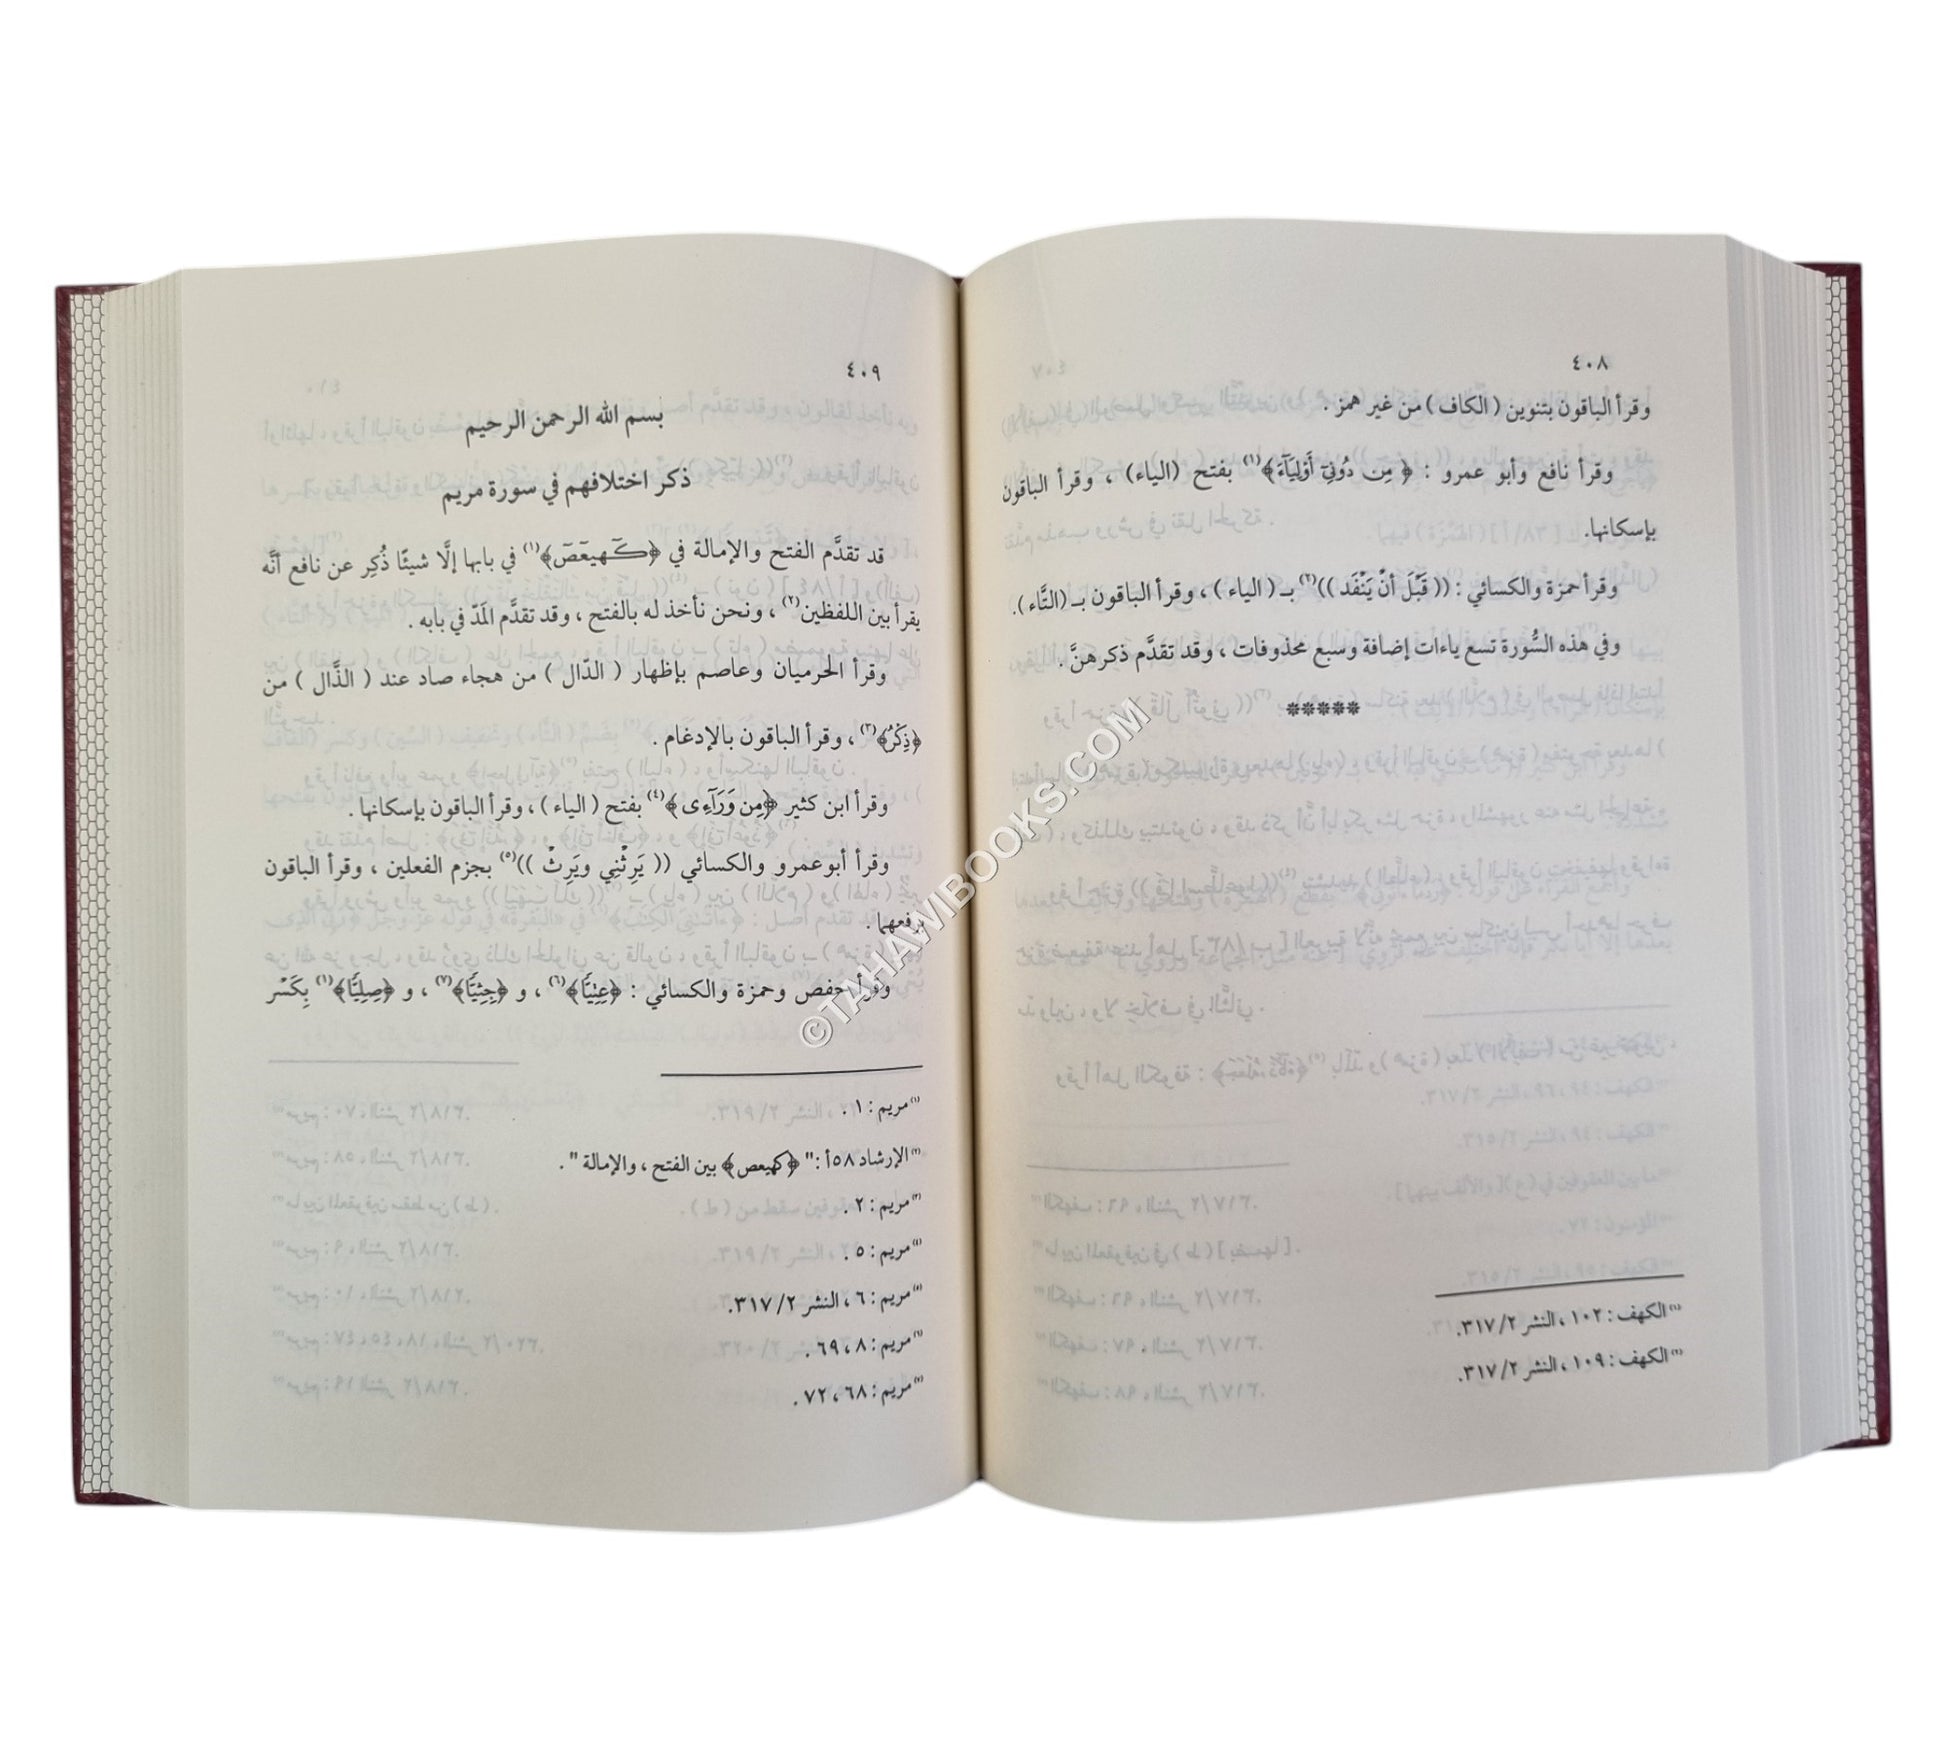 ٤٠٨
وقرأ الباقون بتنوين ( الكاف ) من غير همز .
وقرأ نافع وأبو عمرو : ﴿ مِن دُونِيٓ أَوْلِيَآءَ﴾(١) بفتح (الياء) ، وقرأ الباقون
بإسكانها.
وقرأ حمزة والكسائي : (( قَبْلَ أنْ يَنْفَد ))(٢) بـ ( الياء ) ، وقرأ الباقون بـ (التَّاء ).
وفي هذه السُّورة تسع ياءات إضافة وسبع محذوفات ، وقد تقدَّم ذكرهنَّ .
*****
(١) الكهف : ١٠٢ ، النشر ٣١٧/٢.
(٢) الكهف : ١٠٩ ، النشر ٣١٧/٢.
٤٠٩
بسم الله الرحمن الرحيم
ذكر اختلافهم في سورة مريم
قد تقدَّم الفتح والإمالة في ﴿كٓهيعٓصٓ﴾(١) في بابها إلَّا شيئًا ذُكِر عن نافع أنَّه
يقرأ بين اللفظين(٢) ، ونحن نأخذ له بالفتح ، وقد تقدَّم المَدّ في بابه .
وقرأ الحرميان وعاصم بإظهار ( الدّال ) من هجاء صاد عند ( الذَّال ) من
﴿ذِكْرُ﴾(٣) ، وقرأ الباقون بالإدغام .
وقرأ ابن كثير ﴿مِن وَرَآءِى ﴾(٤) بفتح ( الياء ) ، وقرأ الباقون بإسكانها .
وقرأ أبو عمرو والكسائي (( يَرِثْنِي ويَرِثْ ))(٥) بجزم الفعلين ، وقرأ الباقون
برفعهما .
وقرأ حفص وحمزة والكسائي : ﴿عِتِيًّا﴾(٦) ، و ﴿جِثِيًّا﴾(٧) ، و ﴿صِلِيًّا﴾(٦) بِكَسْر
(١) مريم : ١ .
(٢) الإرشاد ٥٨أ : " ﴿كهيعص﴾ بين الفتح ، والإمالة " .
(٣) مريم : ٢ .
(٤) مريم : ٥ .
(٥) مريم : ٦ ، النشر ٣١٧/٢.
(٦) مريم : ٨ ، ٦٩ .
(٧) مريم : ٦٨ ، ٧٢ .
©TAHAWIBOOKS.COM